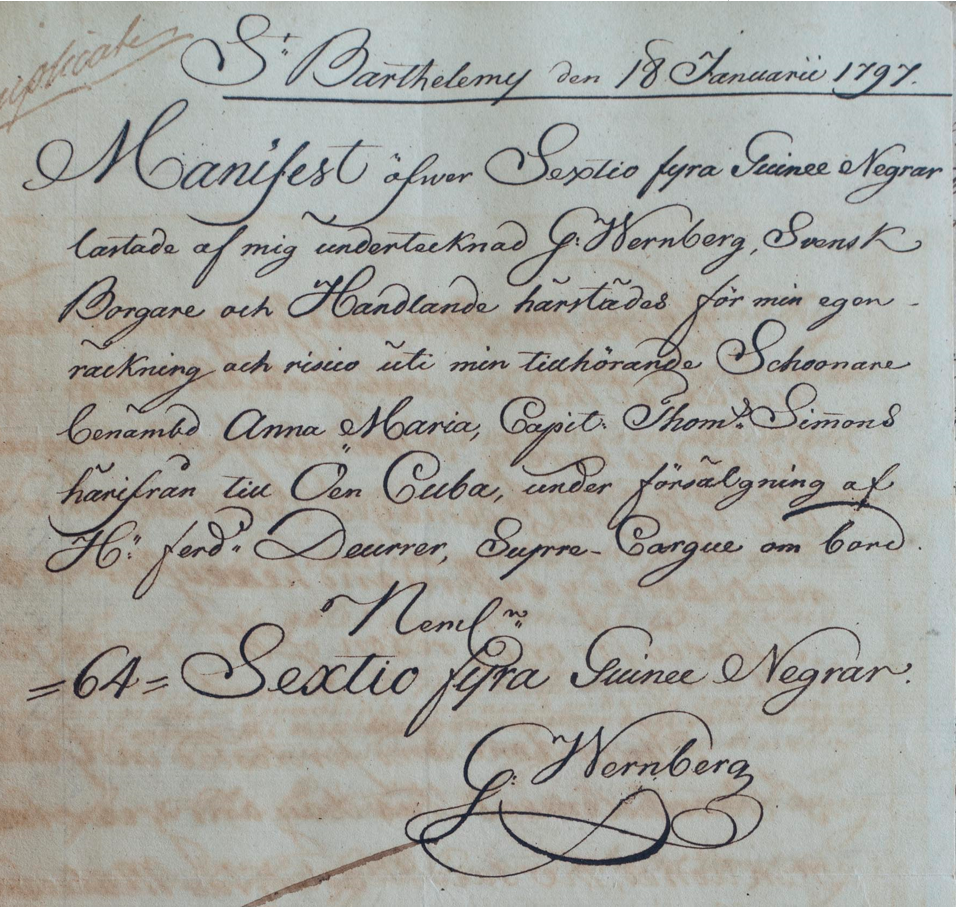 St. Barthelemy den 18 Januarii 1797.
Manifest öfwer Sextio fyra Guinee Negrar
lastade af mig undertecknad G: Wernberg, Svensk
Borgare och Handlande härstädes för min egen
räckning och risico uti min tillhörande Schoonare
benämbd Anna Maria, Capit: Thoms. Simons
härifrån till Öen Cuba, under försälgning af
Hr: ferdd: Deurrer, Supre-Cargue om bord.
Nemln:
=64= Sextio fyra Guinee Negrar.
G: Wernberg